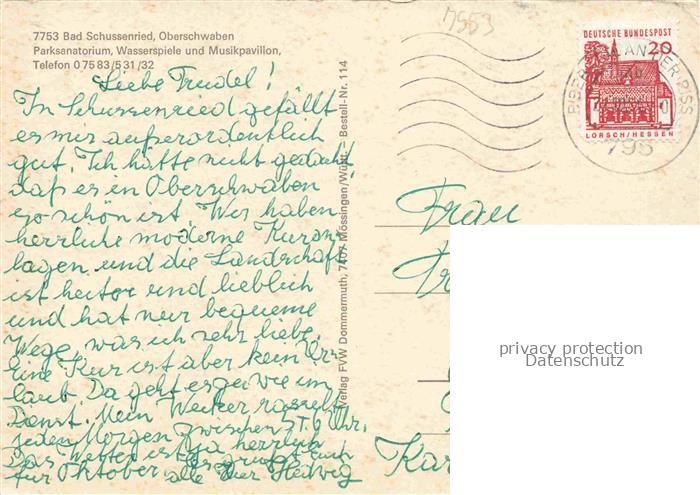 7753 Bad Schussenried, Oberschwaben
Parksanatorium, Wasserspiele und Musikpavillon,
Telefon 0 75 83 / 5 31 / 32
Liebe Trudel!
In Schussenried gefällt
es mir außerordentlich
gut. Ich hätte nicht gedacht
daß es in Oberschwaben
so schön ist. Wir haben
herrliche moderne Kuran-
lagen, und die Landschaft
ist heiter und lieblich
und hat nur bequeme
Wege, was ich sehr liebe.
Eine Kur ist aber kein Ur-
laub. Da geht es zu wie im
Dienst. Mein Wecker rasselt
jeden Morgen zwischen 5 Uhr.
Das Wetter ist ja herrlich
für Oktober. Es grüßt euch
alle Hedwig
Verlag FVW Dommermuth, 7407 Mössingen/Württ. Bestell-Nr. 114
7953
DEUTSCHE BUNDESPOST
20
LORSCH/HESSEN
BIBERACH AN DER RISS
795
Frau
Kar
privacy protection
Datenschutz